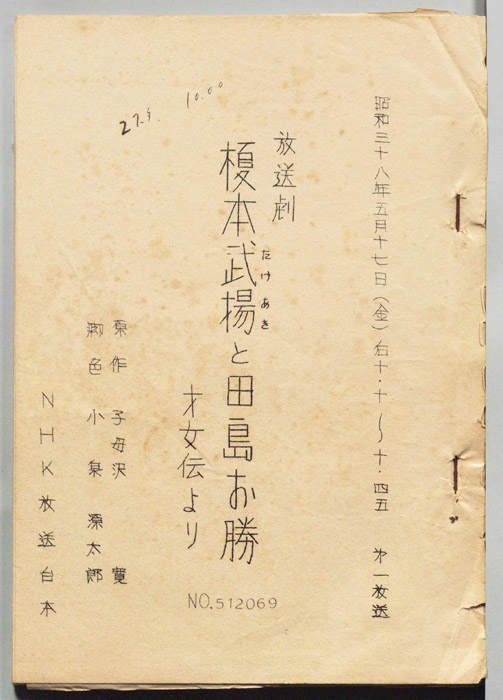 昭和三十八年五月十七日(金)右十・十〜十・四五 第一放送
放送劇
榎本武揚と田島お勝
たけあき
才女伝より
原作 子母沢 寛
脚色 小泉 源太郎
NHK放送台本
NO.512069
10.00